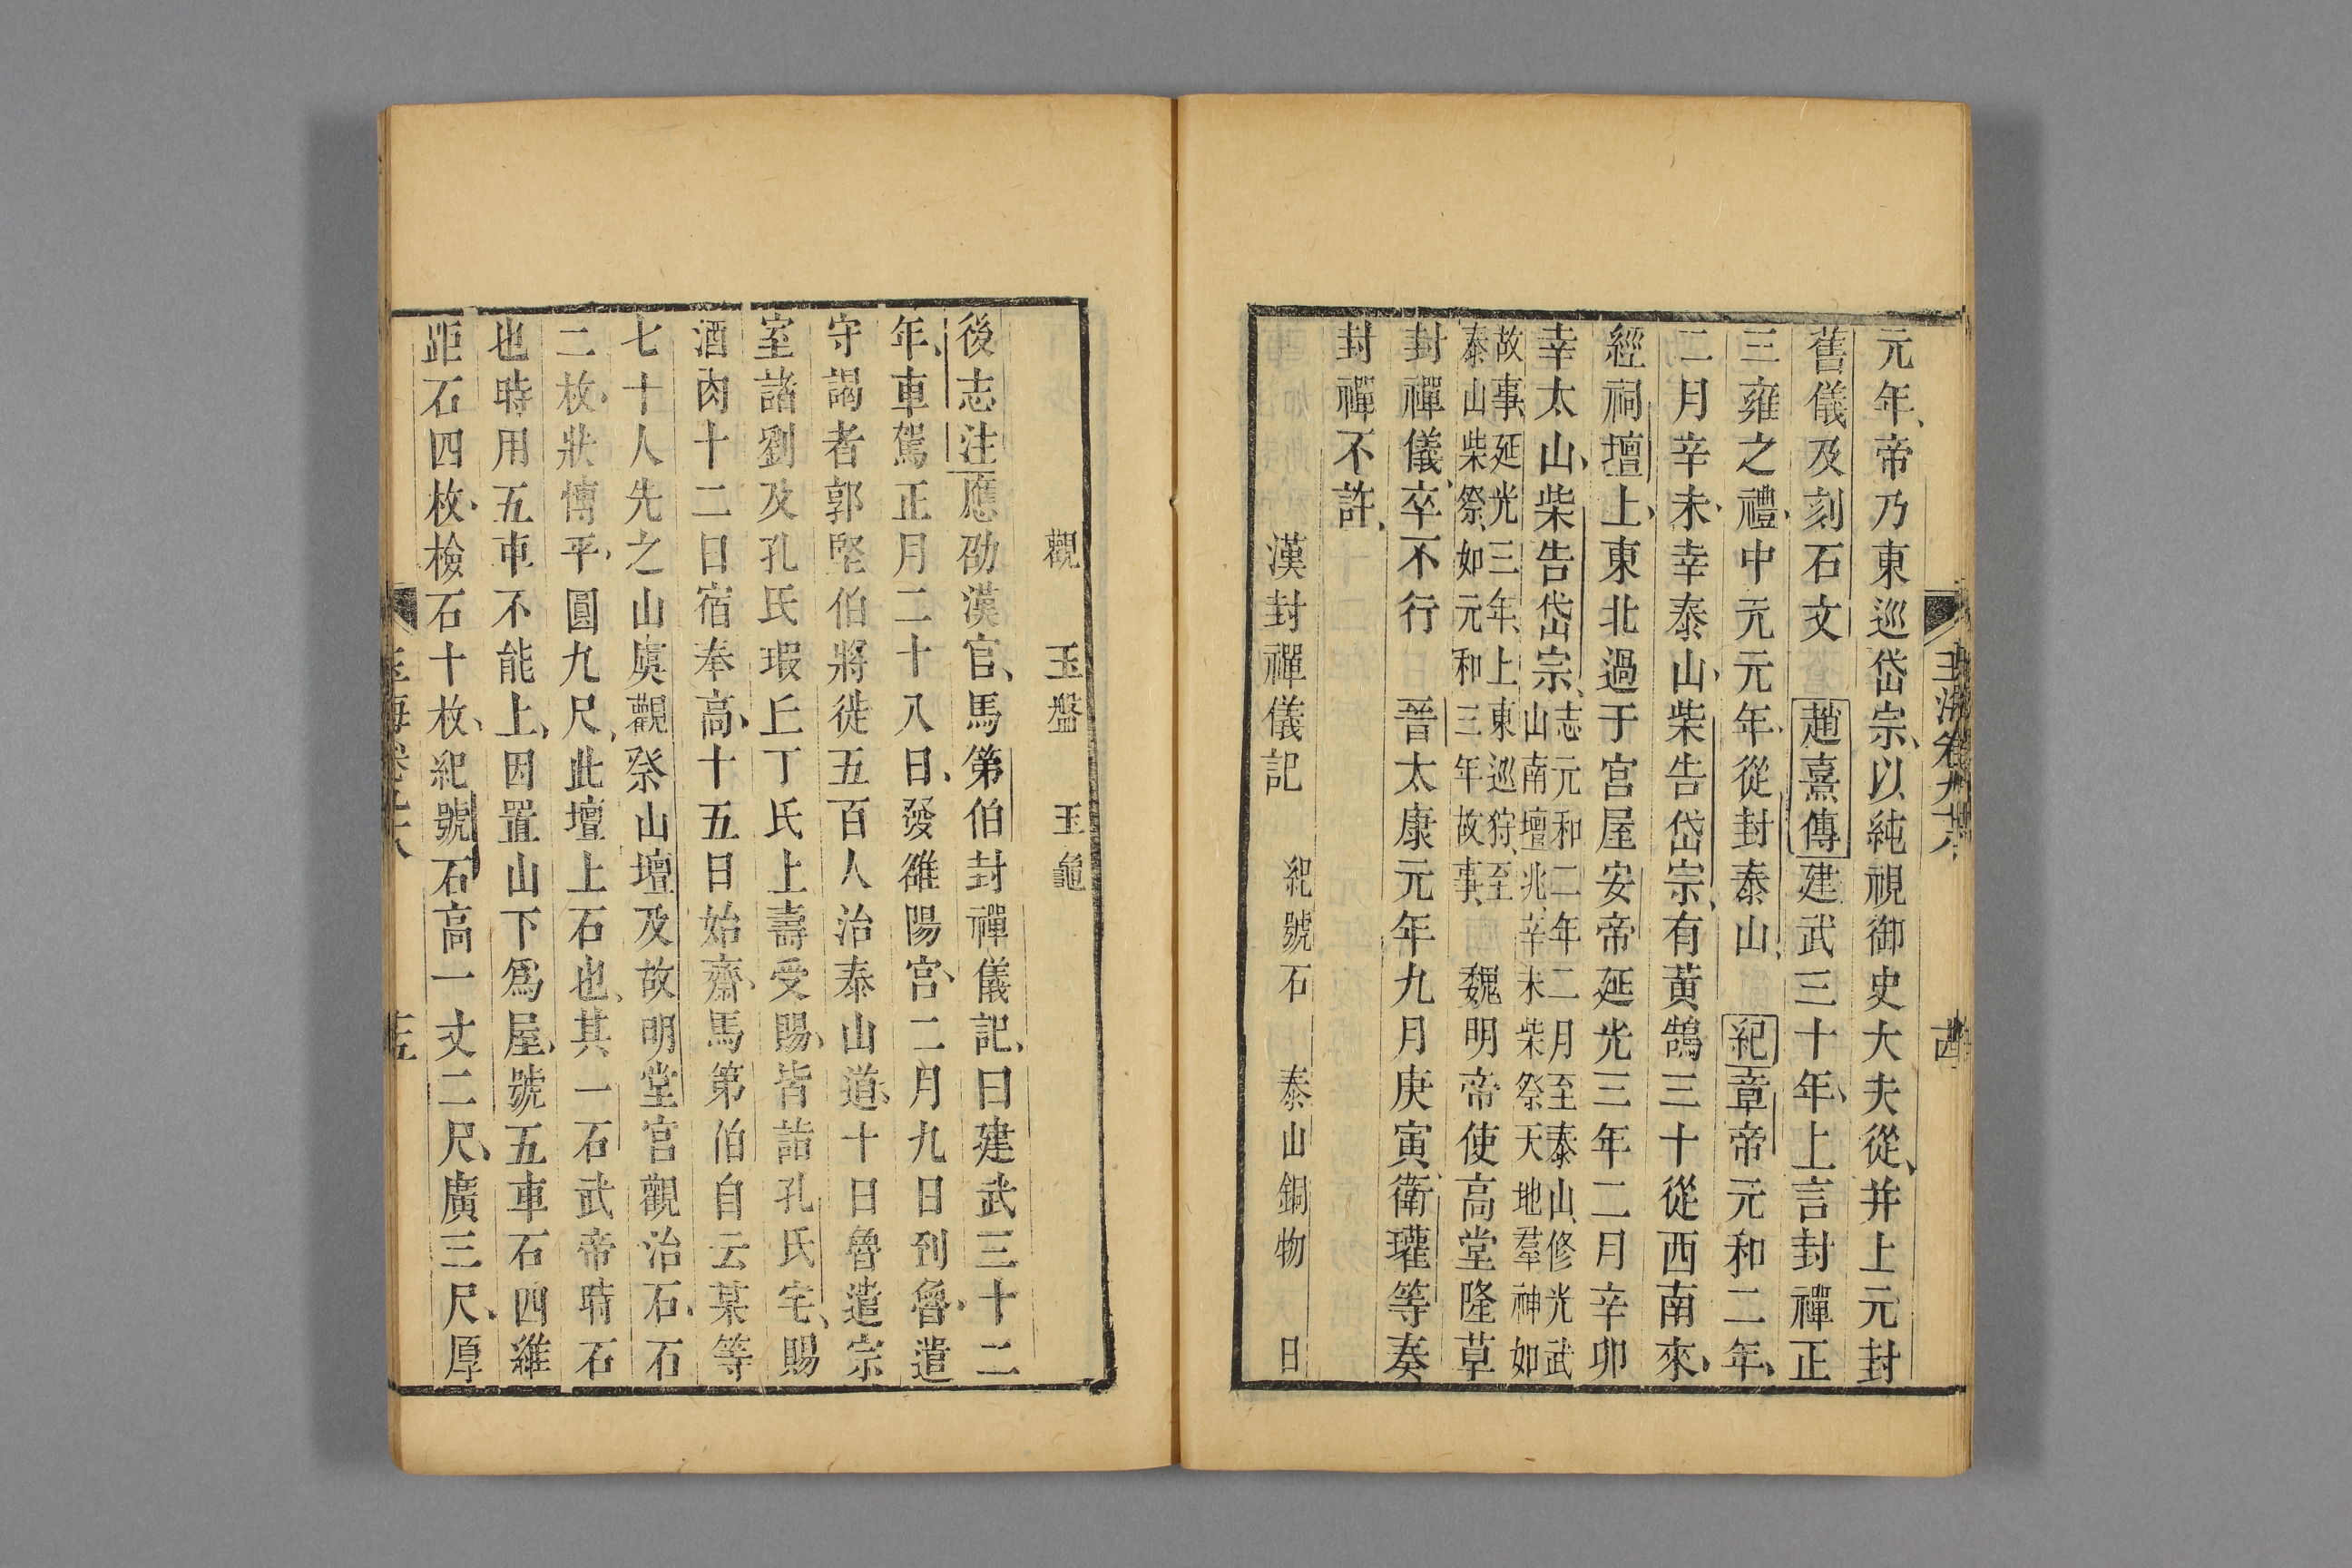 元年、帝乃東巡岱宗、以純視御史大夫從、并上元封
舊儀及刻石文 趙熹傳建武三十年、上言封禪正
三雍之禮、中元元年、從封泰山、 紀章帝元和二年、
二月辛未、幸泰山、柴告岱宗、有黃鵠三十從西南來、
經祠壇上、東北過于宮屋安帝延光三年二月辛卯
幸太山、柴告岱宗、志元和二年二月至泰山、修光武
山南壇兆、辛未柴祭天地羣神如
故事、延光三年、上東巡狩、至
泰山柴祭、如元和三年故事、 魏明帝使高堂隆草
封禪儀、卒不行 晉太康元年九月庚寅、衛瓘等奏
封禪不許、
漢封禪儀記 紀號石 泰山銅物 日
玉海卷九十八 十四
觀 玉盤 玉龜
後志注應劭漢官、馬第伯封禪儀記、曰建武三十二
年、車駕正月二十八日、發雒陽宮、二月九日到魯、遣
守謁者郭堅伯將徙五百人治泰山道、十日魯遣宗
室諸劉及孔氏瑕丘丁氏上壽受賜、皆詣孔氏宅、賜
酒肉十二日宿奉高、十五日始齋、馬第伯自云某等
七十人先之山虞觀祭山壇及故明堂宮觀治石、石
二枚、狀慱平、圓九尺、此壇上石也、其一石武帝時石
也時用五車不能上、因置山下爲屋、號五車石四維
距石四枚、檢石十枚、紀號石高一丈二尺、廣三尺、厚
玉海卷九十八 十五